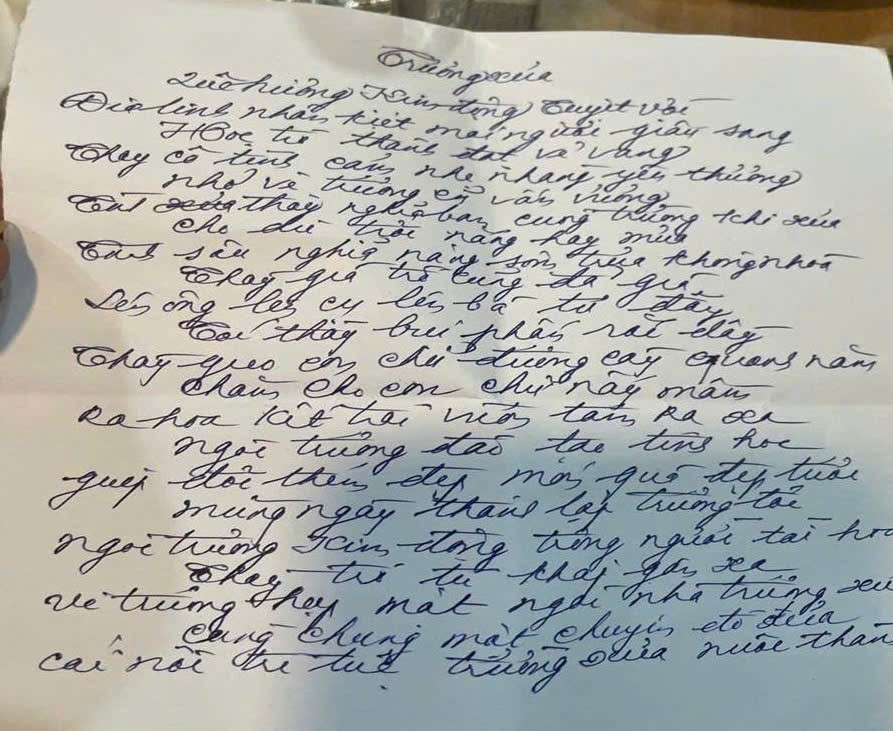 Trường xưa
Quê hương Kim động tuyệt vời
Địa linh nhân kiệt mọi người giàu sang
Học trò thành đạt vẻ vang
Thầy cô tình cảm nhẹ nhàng yêu thương
nhớ về trường cũ vấn vương
Tình thầy nghĩa bạn cùng trường khi xưa
cho dù trời nắng hay mưa
Tình sâu nghĩa nặng sớm trưa không nhòa
Thầy già trò cũng đã già
Lên ông lên cụ lên bà từ đây
Tóc thầy bụi phấn rơi đầy
Thầy gieo con chữ đường cày quanh năm
chăm cho con chữ nảy mầm
Ra hoa kết trái vươn tầm ra xa
ngôi trường đào tạo tinh hoa
giúp đời thêm đẹp món quà đẹp tươi
mừng ngày thành lập trường tôi
ngôi trường Kim động trồng người tài hoa
Thầy trò từ khắp gần xa
về trường họp mặt ngôi nhà trường xưa
cùng chung một chuyến đò đưa
cái nôi trí tuệ trường xưa nuôi